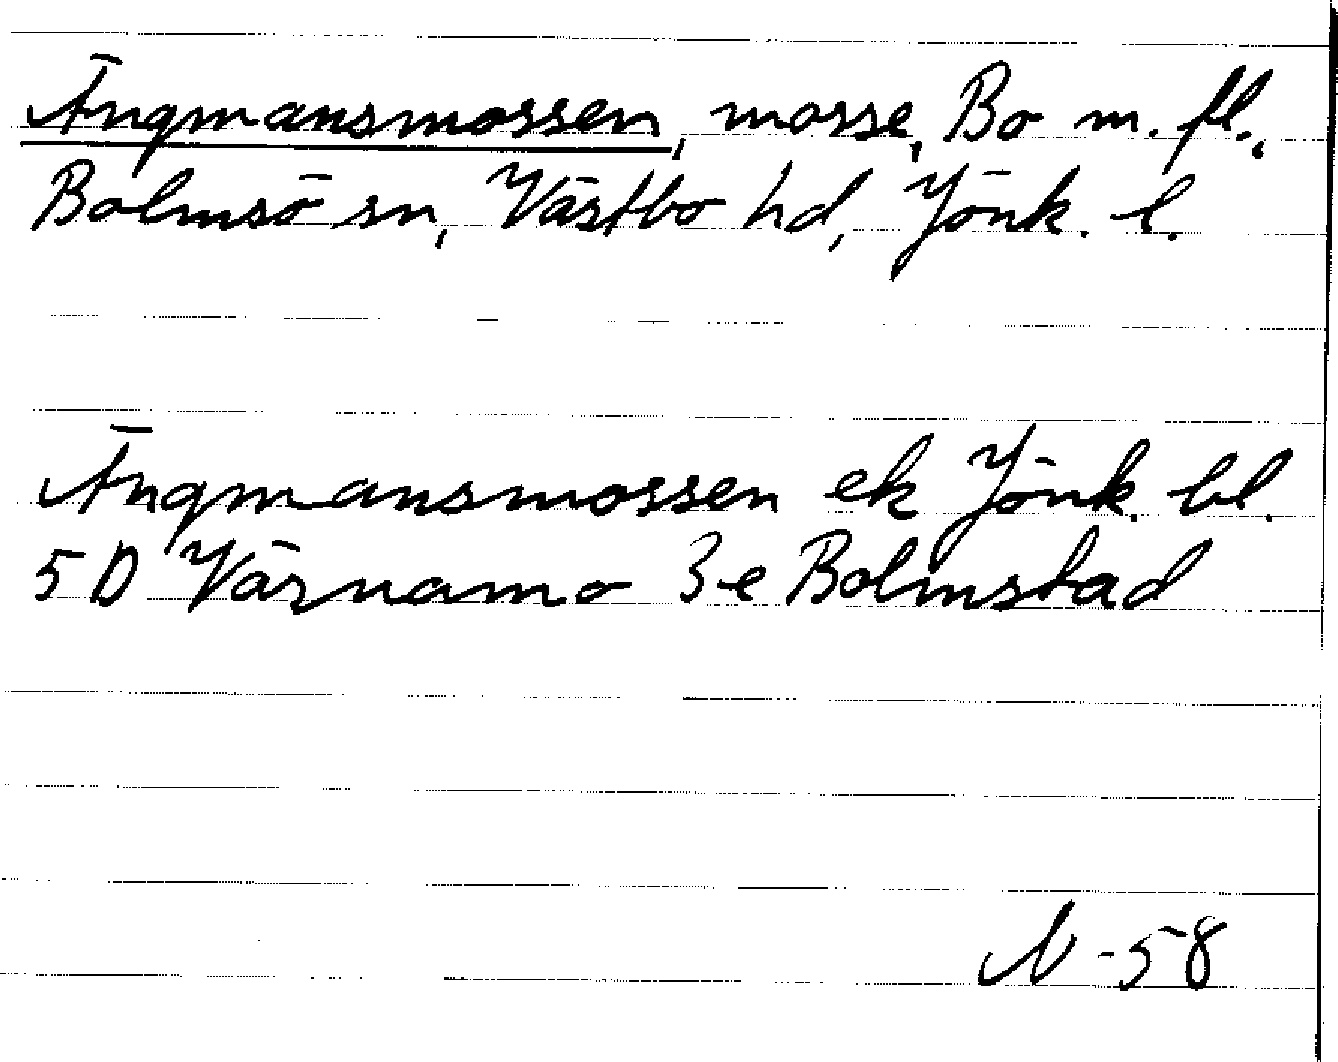 Ängmansmossen, mosse, Bo m. fl.,
Bolmsö sn, Västbo hd, Jönk. l.
Ängmansmossen ek Jönk. bl.
5 D Värnamo 3e Bolmstad
N -58